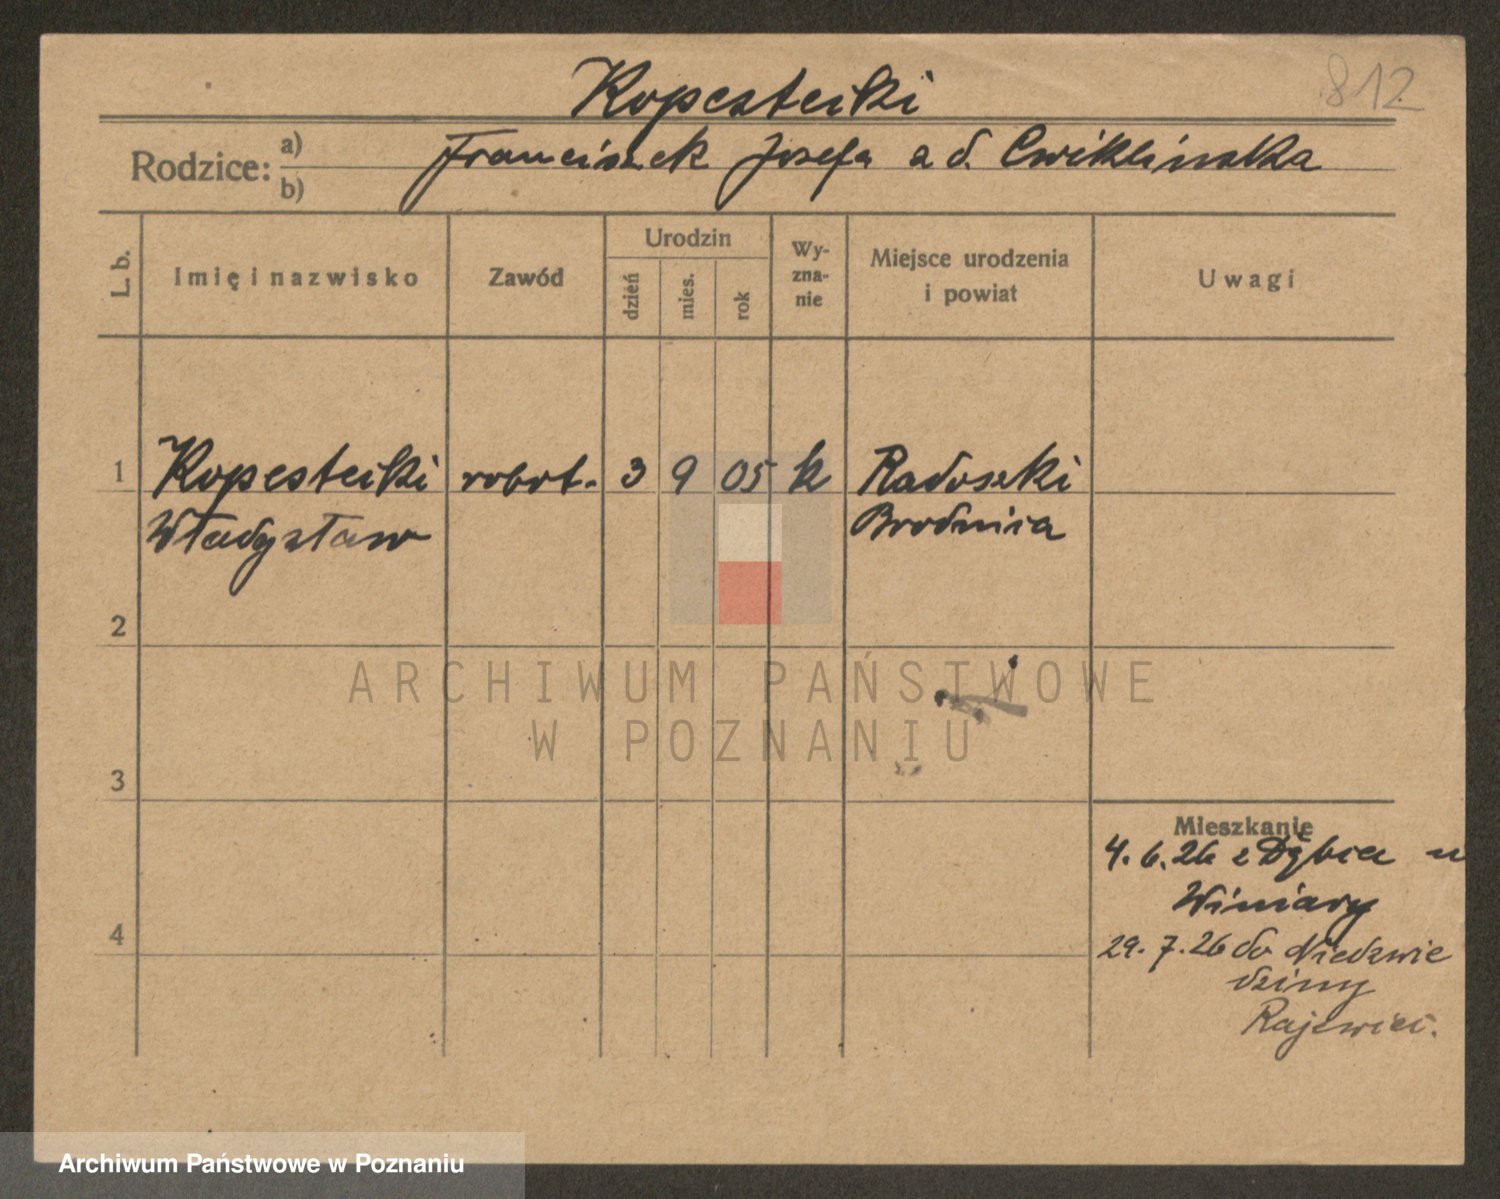 812
Kopesteiki
Rodzice: a)
Franciszek Józefa a d. Cwiklińska
b)
L. b.
Imię i nazwisko
Zawód
Urodzin
dzień
mies.
rok
Wy-
zna-
nie
Miejsce urodzenia
i powiat
Uwagi
1
Kopesteiki robot. 3 9 05 k Radoszki
Władysław Brodnica
2
ARCHIWUM PAŃSTWOWE
W POZNANIU
3
Mieszkanie
4. 6. 26 z Dębiec
Winiary
4
29. 7. 26 do Niedzwie
dziny
Archiwum Państwowe w Poznaniu